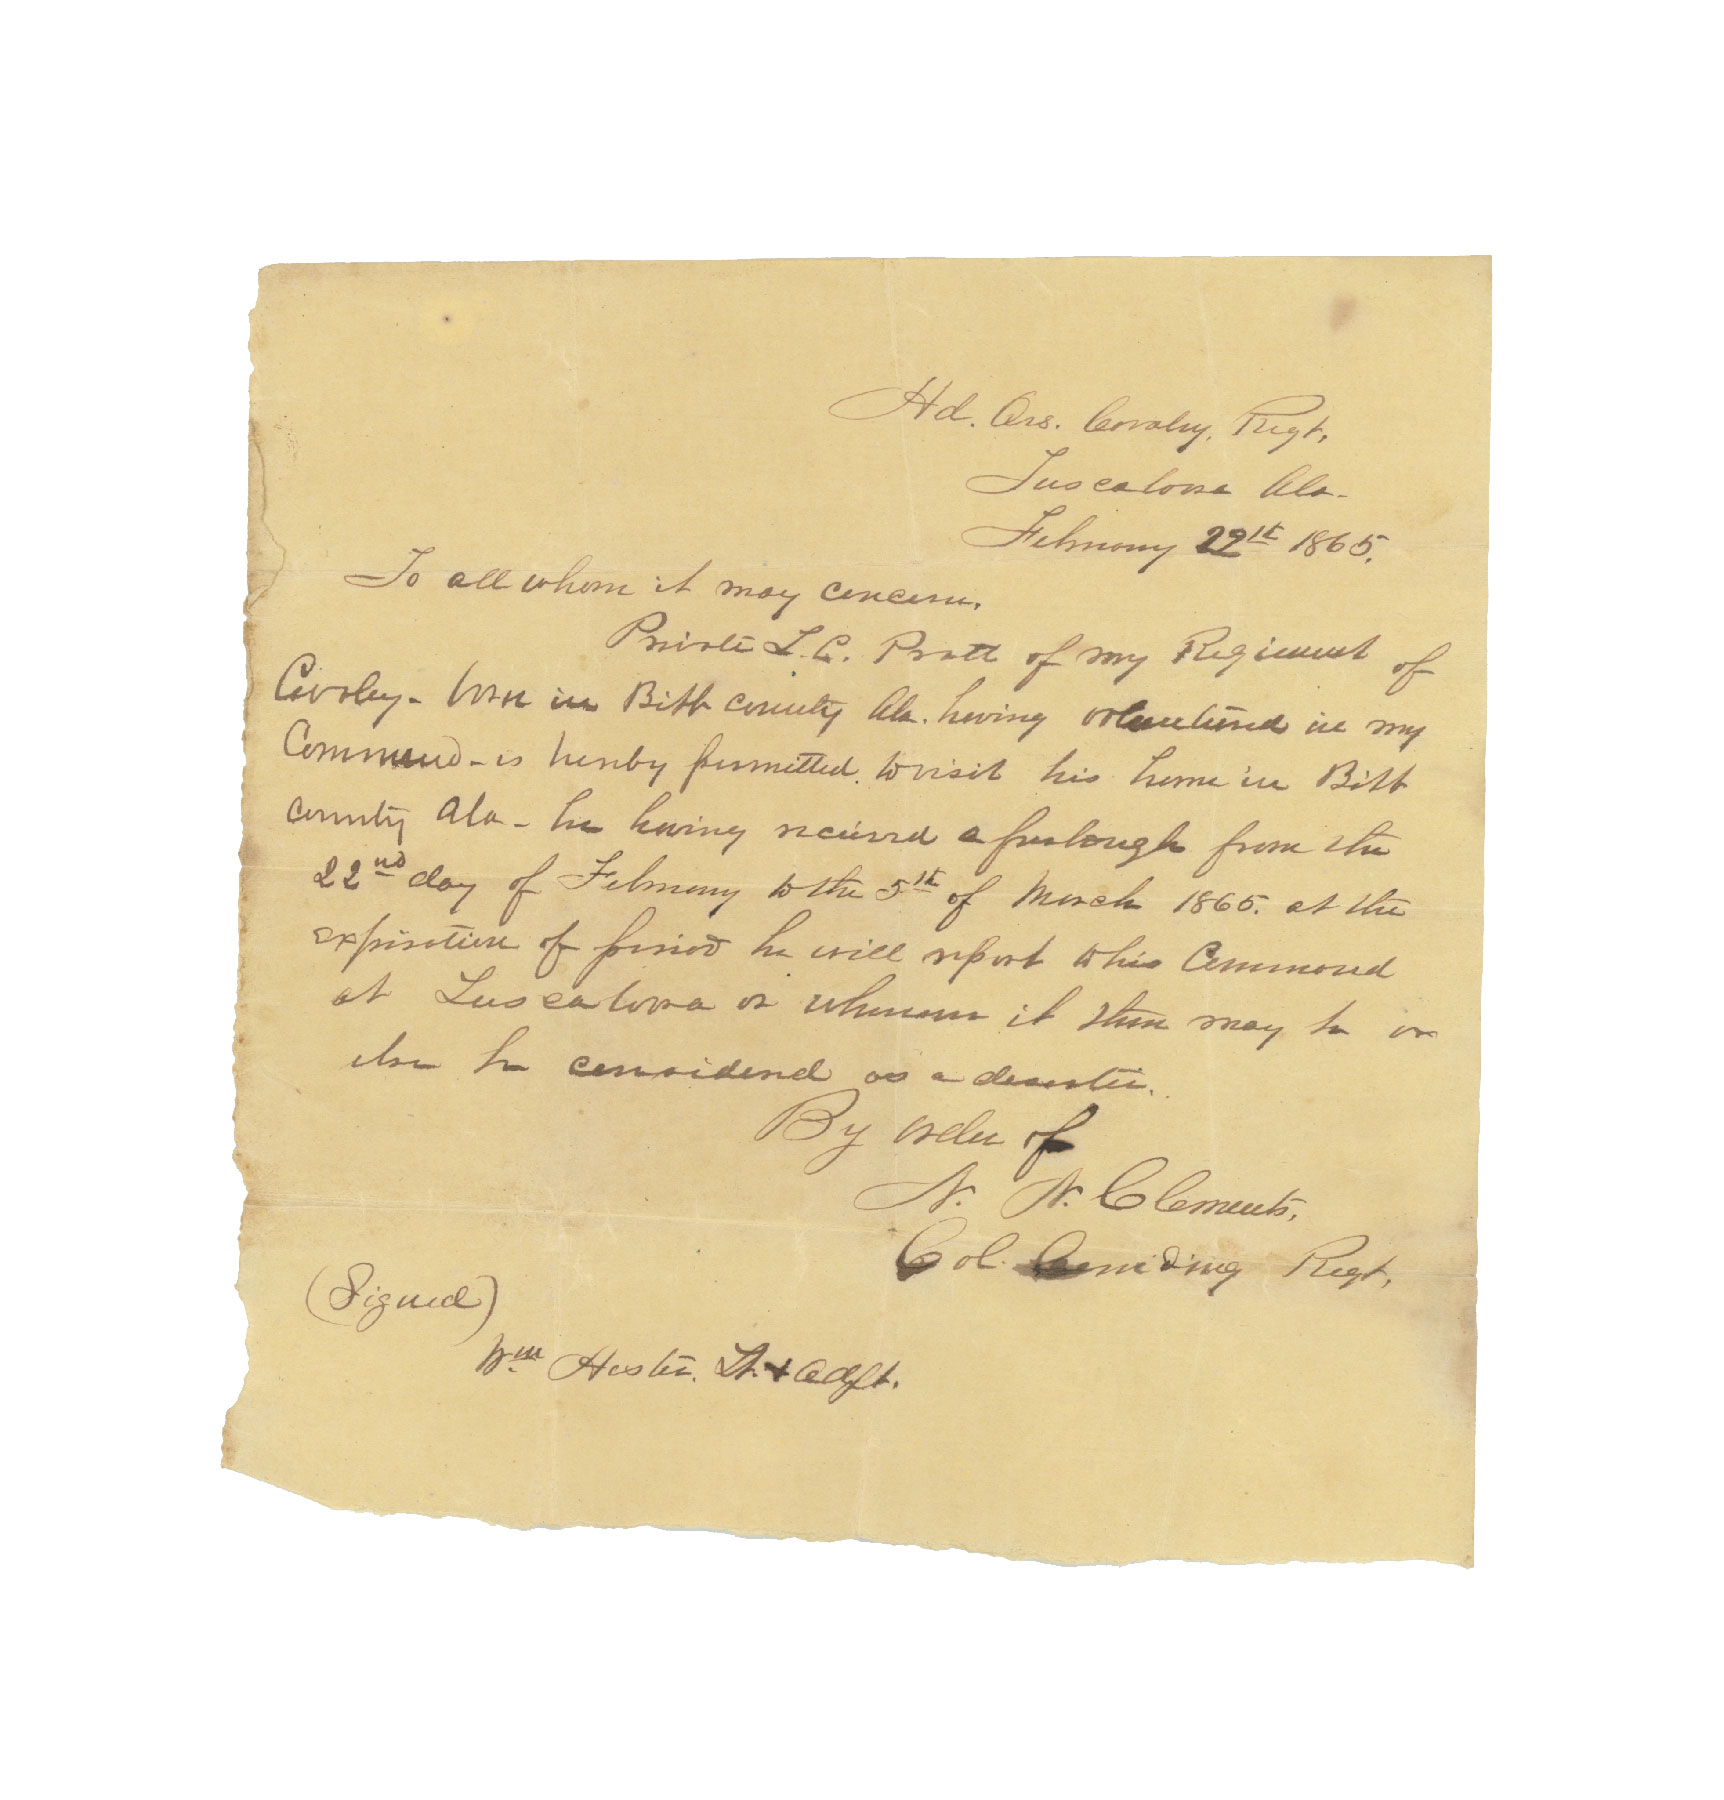 Hd. Qrs. Cavalry, Regt,
Tuscaloosa Ala-
February 22st 1865.
To all whom it may concern,
Private L. C. Pratt of my Regiment of
Cavalry - born in Bibb county Ala. having volunteered in my
Command - is hereby permitted to visit his home in Bibb
county Ala - he having recieved a furlough from the
22nd day of February to the 5th of March 1865. at the
expiration of period he will report to his Command
at Tuscaloosa or wherever it then may be or
else be considered as a deserter.
By order of
N. N. Clements,
Col. Comding Regt,
(Signed)
Wm Hester. Lt. + Adjt.